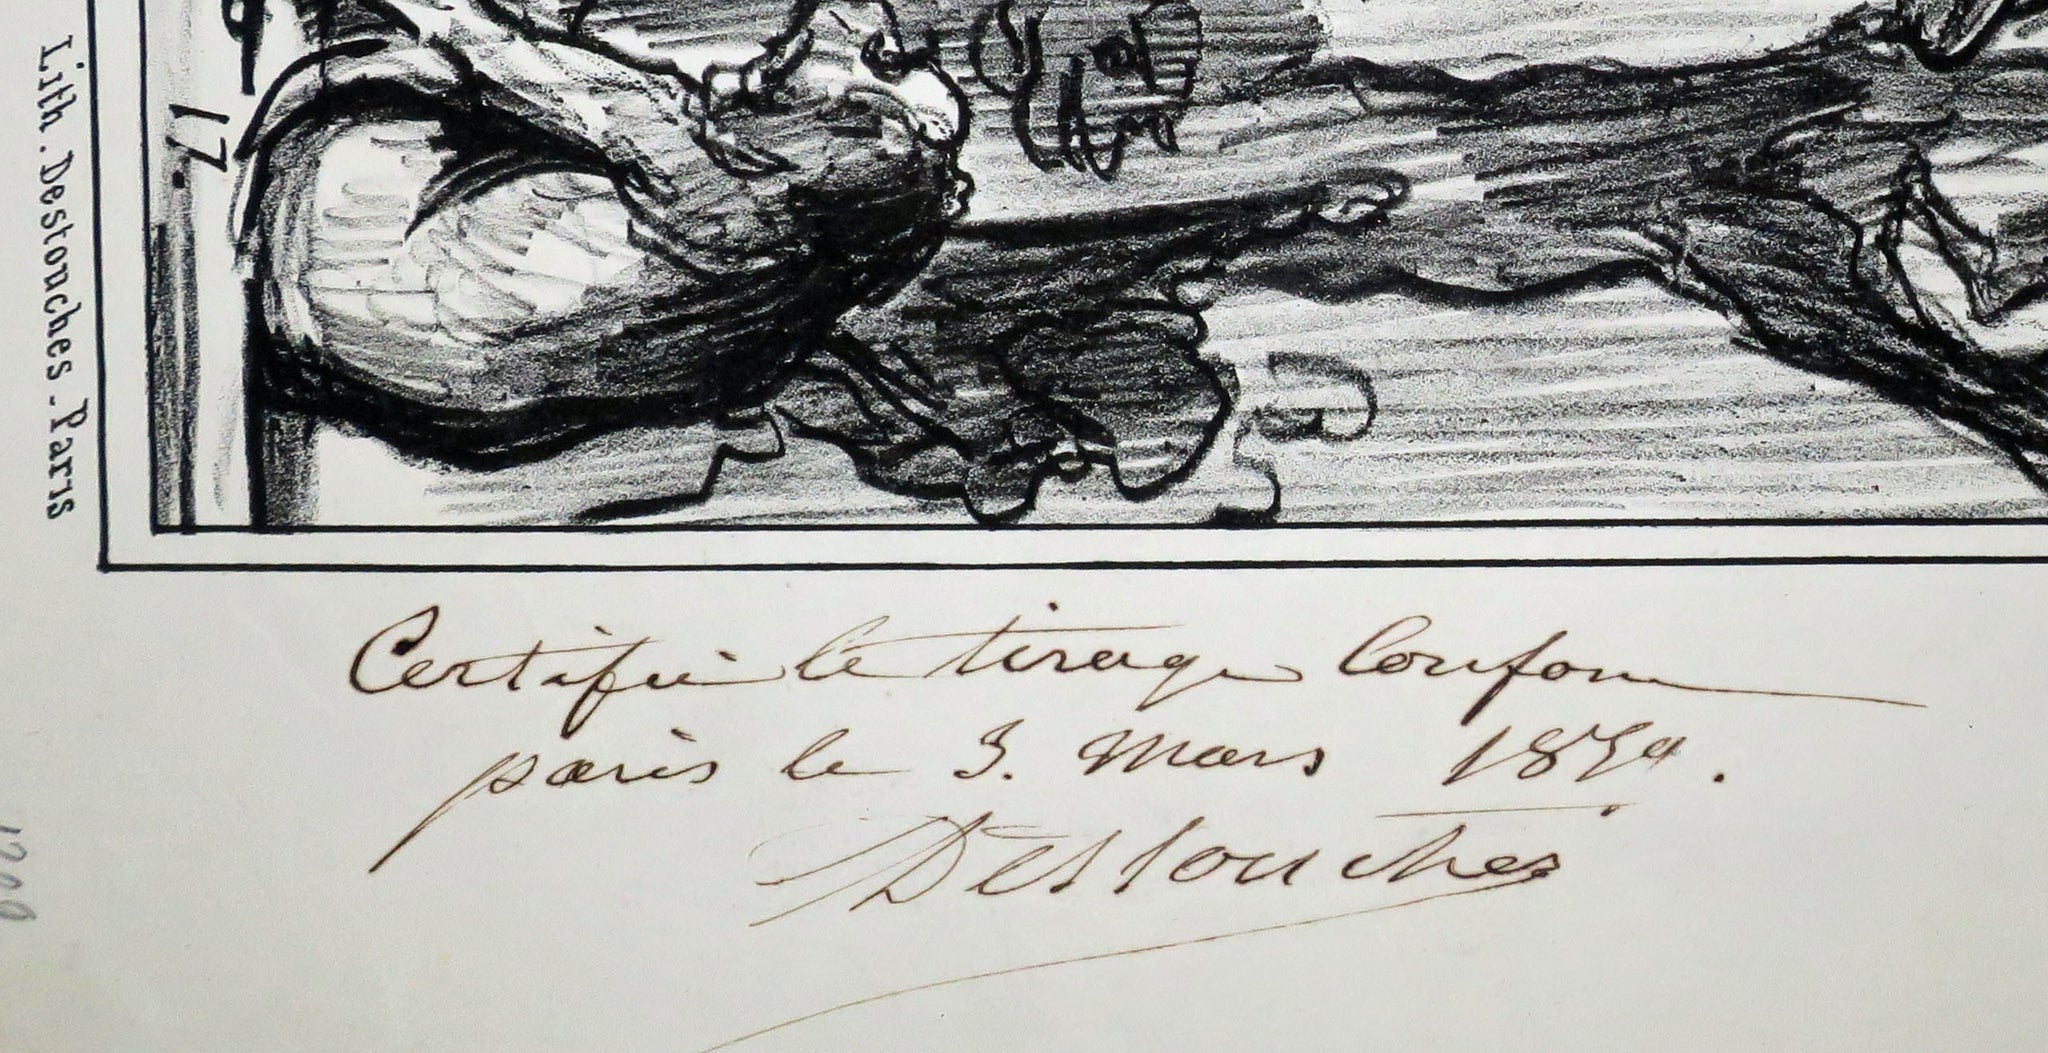 Lith. Destouches - Paris
17
Certifié le tirage Conforme
paris le 3. Mars
Destouches